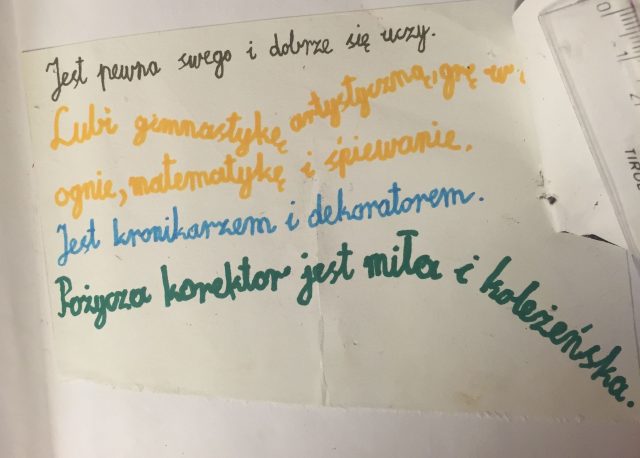 Jest pewna swego i dobrze się uczy.
Lubi gimnastykę artystyczną, grę w
ognie, matematykę i śpiewanie.
Jest kronikarzem i dekoratorem.
Pożycza korektor jest miła i koleżeńska.
0
1
2